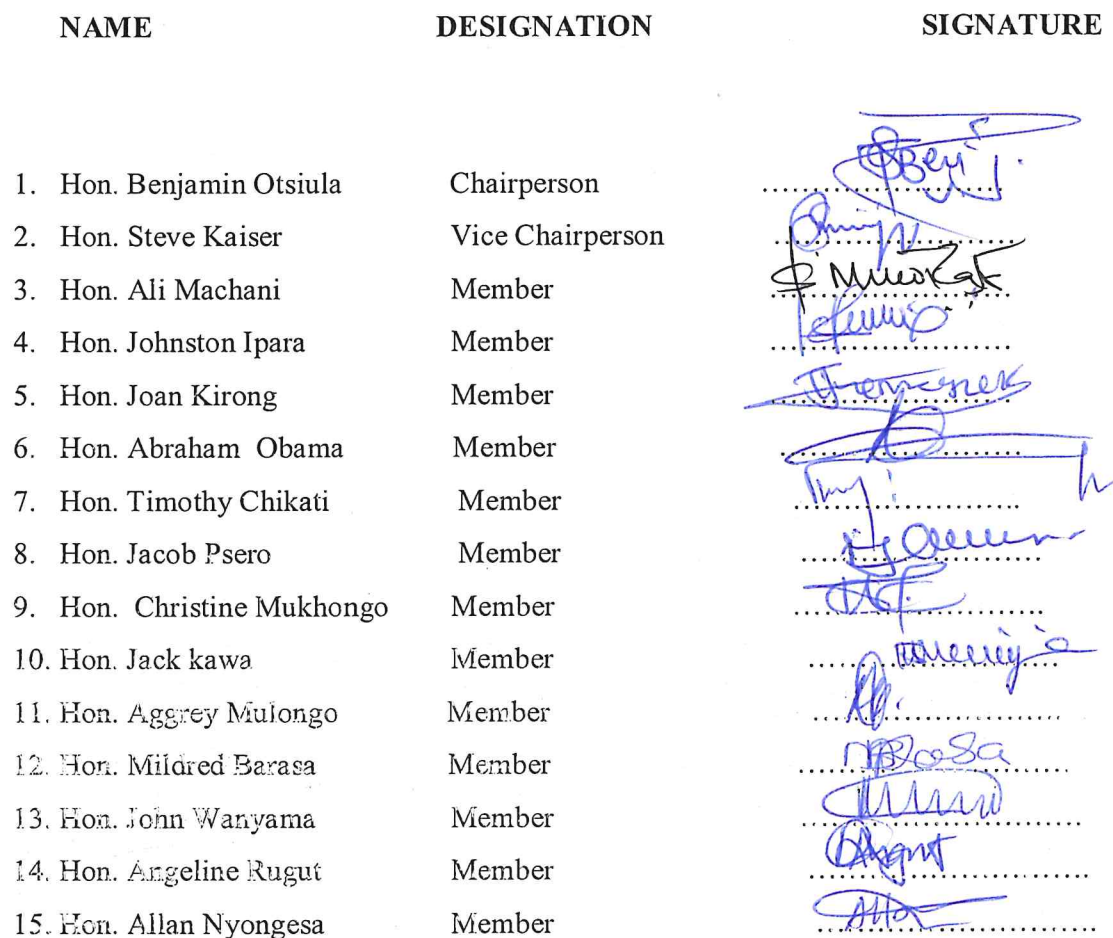 NAME DESIGNATION SIGNATURE
1. Hon. Benjamin Otsiula Chairperson
2. Hon. Steve Kaiser Vice Chairperson
3. Hon. Ali Machani Member
4. Hon. Johnston Ipara Member
5. Hon. Joan Kirong Member
6. Hon. Abraham Obama Member
7. Hon. Timothy Chikati Member
8. Hon. Jacob Psero Member
9. Hon. Christine Mukhongo Member
10. Hon. Jack kawa Member
11. Hon. Aggrey Mulongo Member
12. Hon. Mildred Barasa Member
13. Hon. John Wanyama Member
14. Hon. Angeline Rugut Member
15. Hon. Allan Nyongesa Member